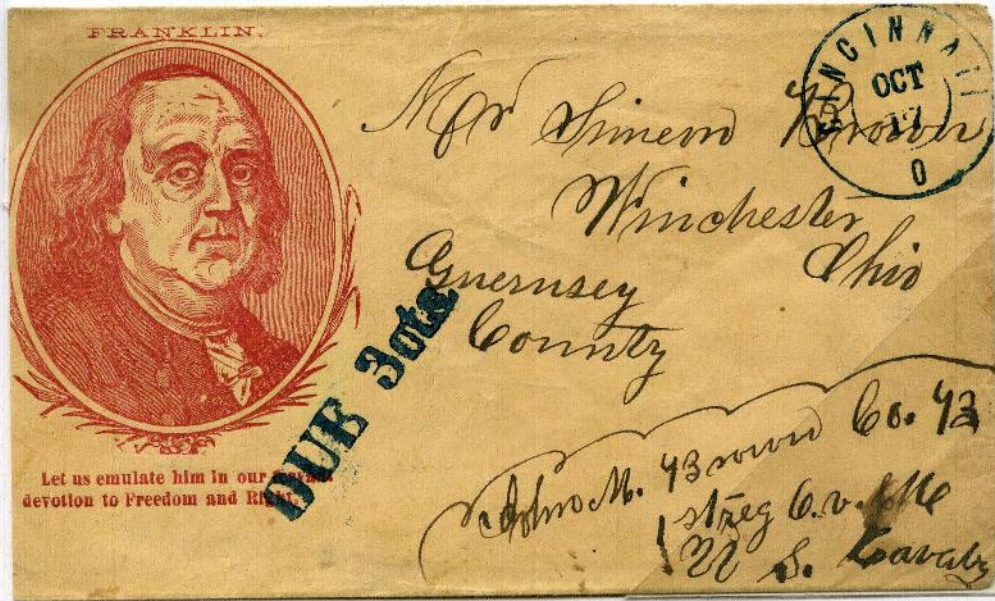 FRANKLIN.
Let us emulate him in our
devotion to Freedom and Right.
CINCINNATI
OCT
17
O
DUE 3cts
Mr Simeon Brown
Winchester
Guernsey Ohio
County
John M. Brown Co. B
1st reg O. v.
U S. Cavalry